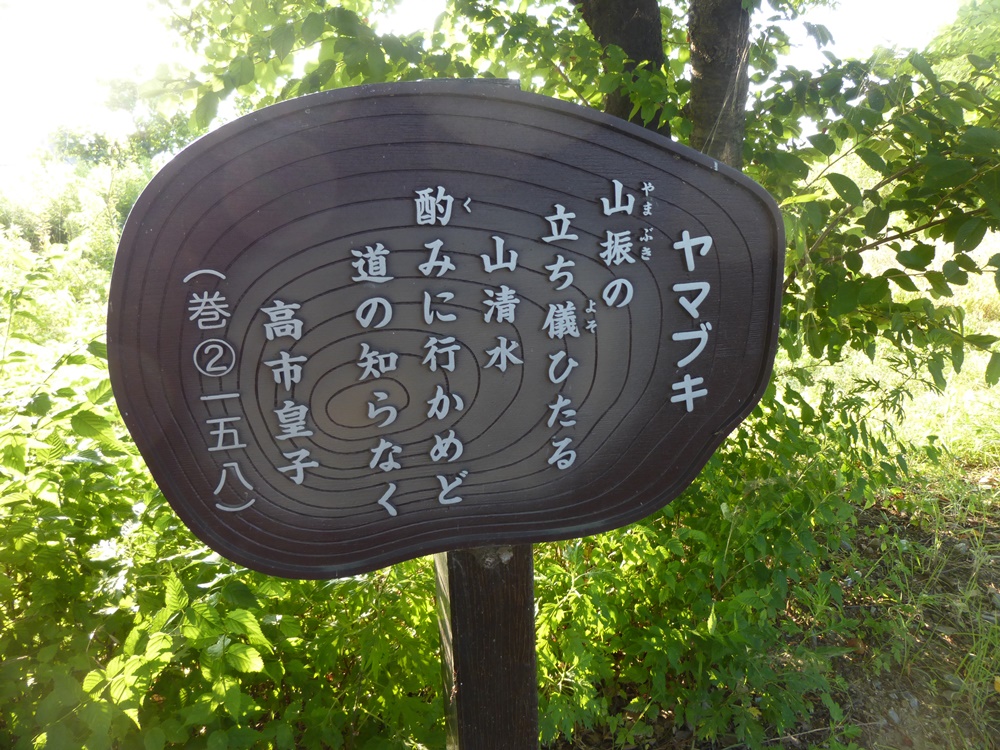 ヤマブキ
山振の
やまぶき
立ち儀ひたる
よそ
山清水
酌みに行かめど
く
道の知らなく
高市皇子
（巻②一五八）